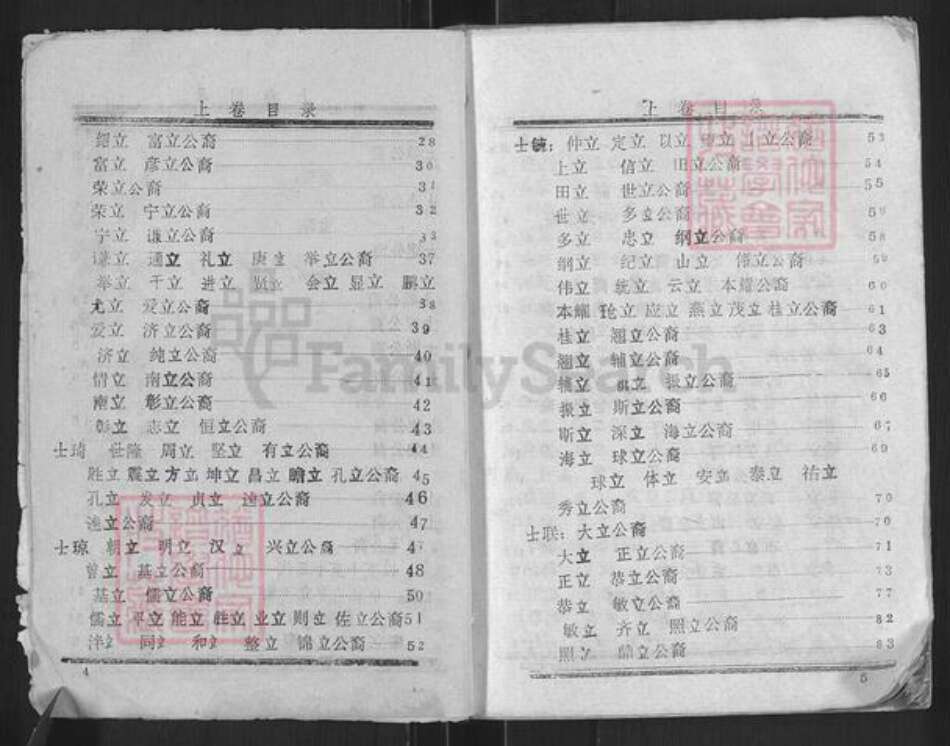 上卷目录
绍立 富立公裔 28
富立 彦立公裔 30
荣立公裔 31
荣立 宁立公裔 32
宁立 谦立公裔 33
谦立 通立 礼立 庚立 举立公裔 37
举立 于立 进立 贤立 会立 显立 鹏立
尤立 爱立公裔 38
爱立 济立公裔 39
济立 纯立公裔 40
情立 南立公裔 41
南立 彰立公裔 42
彰立 志立 恒立公裔 43
士琦 世隆 周立 坚立 有立公裔 44
胜立 震立 方立 坤立 昌立 瞻立 孔立公裔 45
孔立 发立 贞立 逵立公裔 46
立公裔 47
士琼 朝立 明立 汉立 兴立公裔 4
曾立 基立公裔 48
基立 儒立公裔 50
儒立 平立 能立 胜立 业立 则立 佐立公裔 51
泮立 同立 和立 整立 锦立公裔 52
4
上卷目录
士毓：仲立 定立 以立 立 立公裔 53
上立 信立 田立公裔 54
田立 世立公裔 55
世立 多立公裔 5
多立 忠立 纲立公裔 58
纲立 纪立 山立 伟立公裔 59
伟立 统立 云立 本耀公裔 60
本耀 立 应立 燕立 茂立 桂立公裔 61
桂立 翘立公裔 63
翘立 辅立公裔 64
辅立 立 振立公裔 65
振立 斯立公裔 66
斯立 深立 海立公裔 67
海立 球立公裔 69
球立 体立 安立 泰立 祜立
秀立公裔 70
士联：大立公裔 70
大立 正立公裔 71
正立 恭立公裔 73
恭立 敏立公裔 77
敏立 齐立 照立公裔 82
照立 立公裔 83
5
FamilySearch